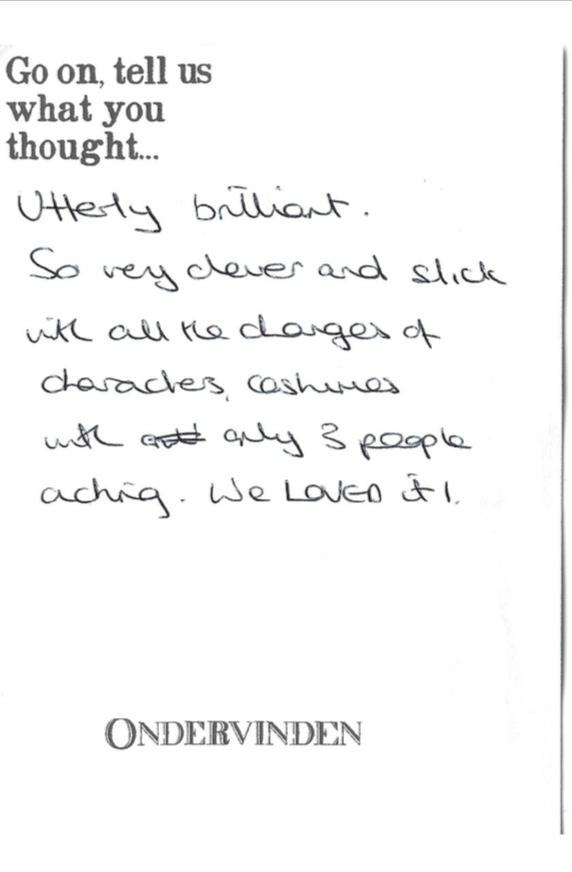 Go on, tell us
what you
thought...
Utterly brilliant.
So very clever and slick
with all the changes of
characters, costumes
with only 3 people
acting. We LOVED it!.
ONDERVINDEN